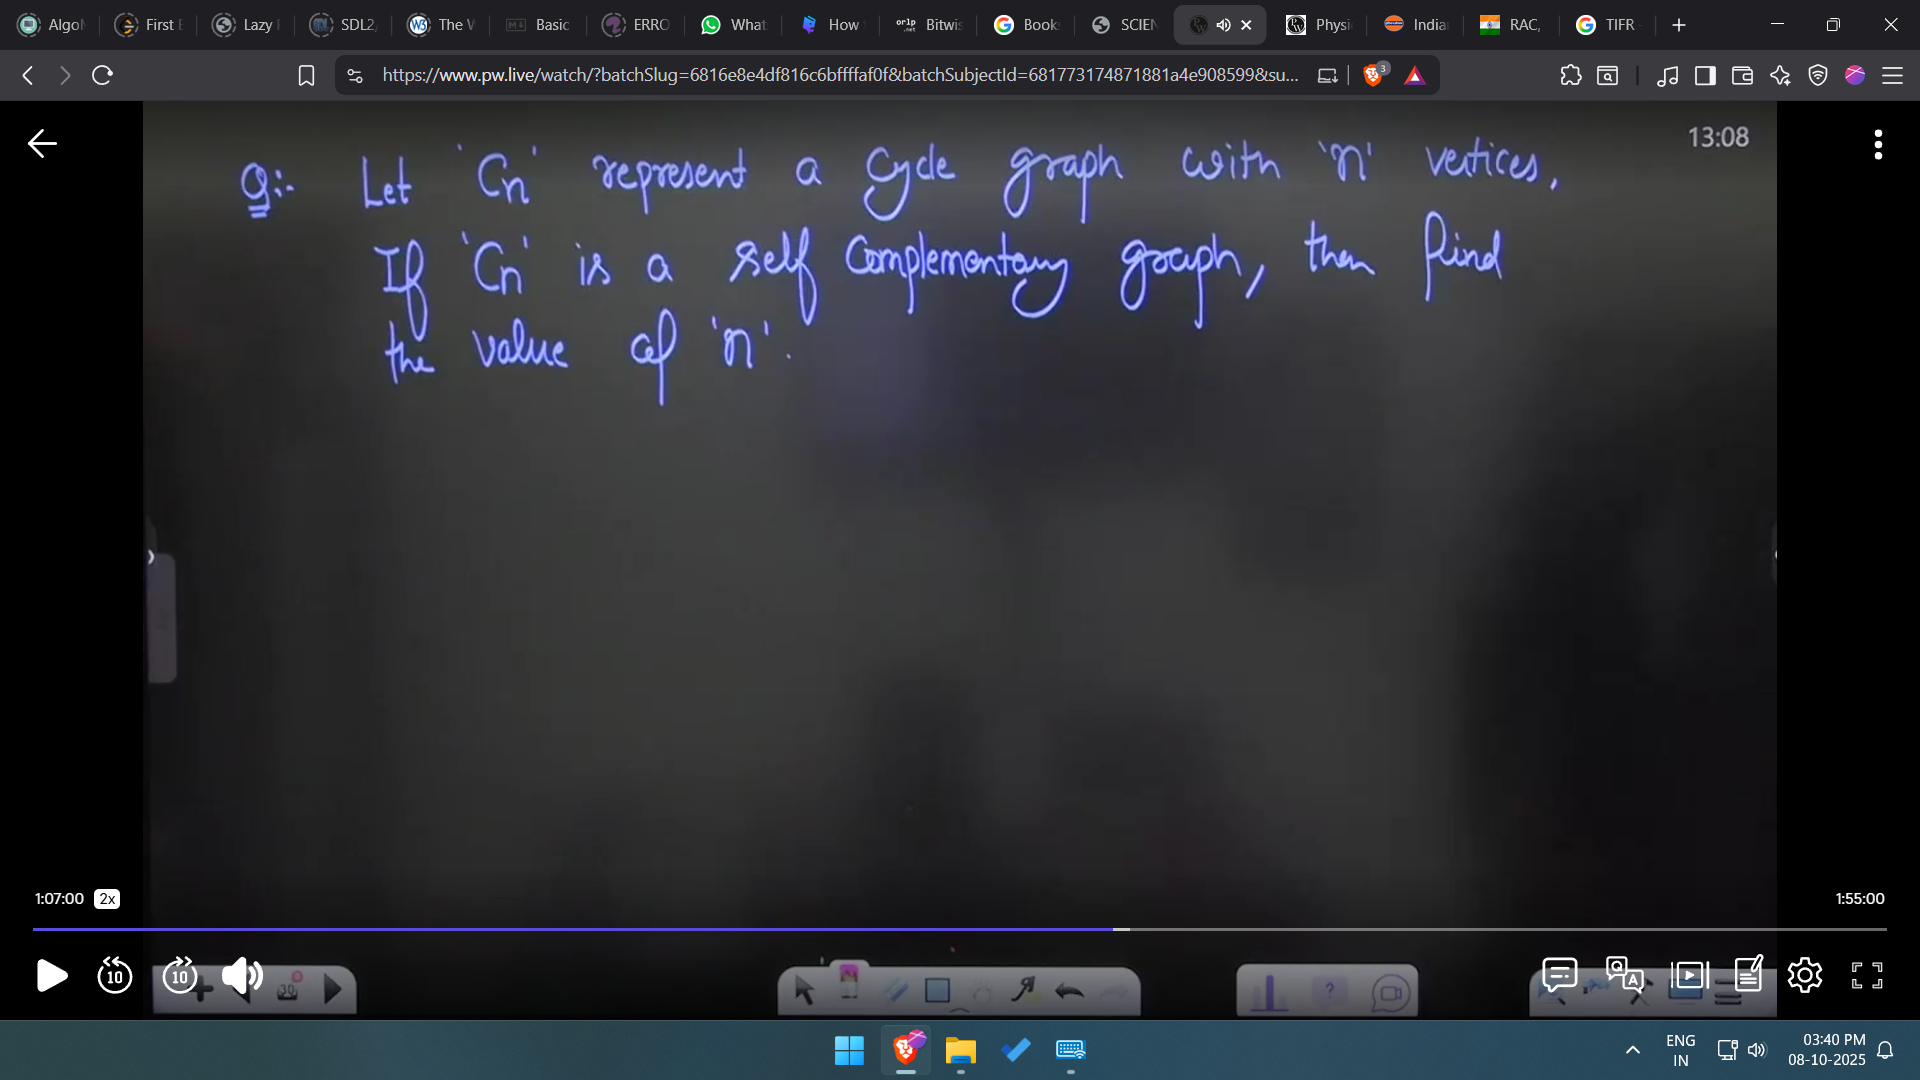 Algo First E Lazy SDL2, The W Basic ERRO What How Bitwis Book SCIEN Physi India RAC, TIFR
https://www.pw.live/watch/?batchSlug=6816e8e4df816c6bffffaf0f&batchSubjectId=681773174871881a4e908599&su... 3
13:08
Q:- Let 'Cn' represent a cycle graph with 'n' vertices,
If 'Cn' is a self complementary graph, then find
the value of 'n'.
1:07:00 2x 1:55:00
10 10 30
ENG 03:40 PM
IN 08-10-2025